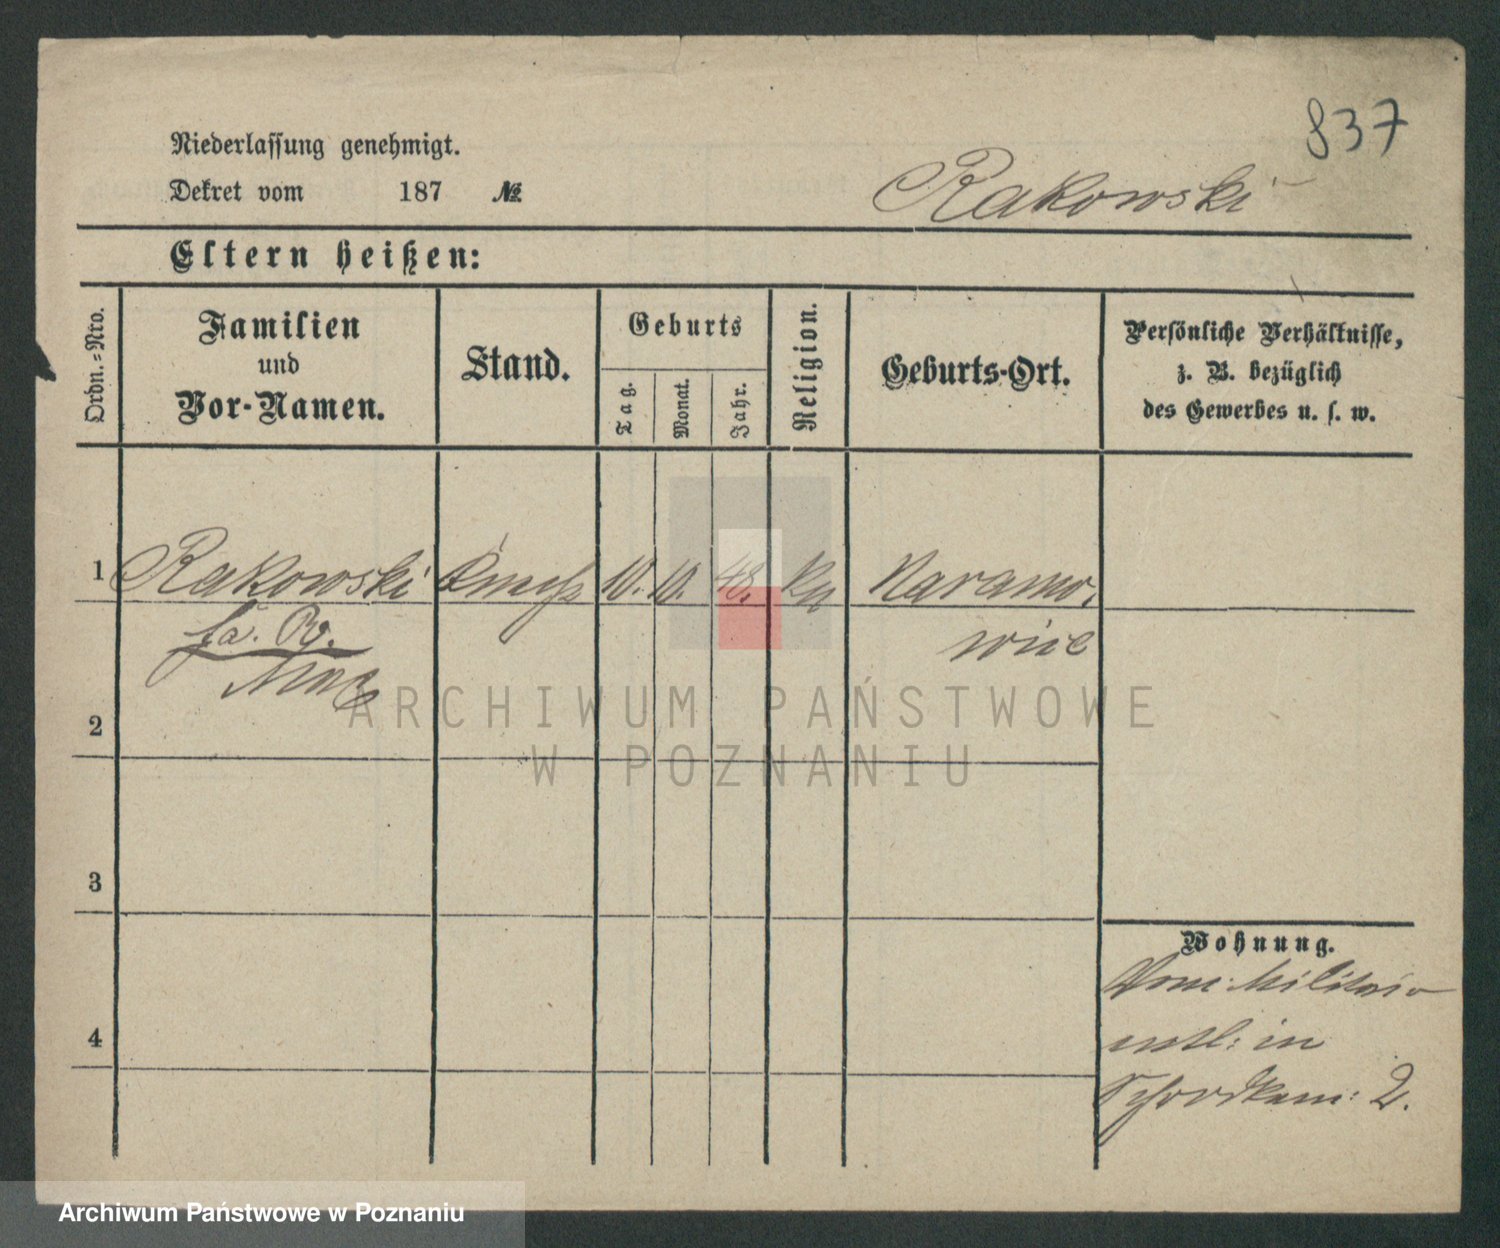 837
Niederlassung genehmigt.
Dekret vom 187 №
Rakowski
Eltern heißen:
Ordn.-Nro.
Familien
und
Vor-Namen.
Stand.
Geburts
Tag.
Monat.
Jahr.
Religion.
Geburts-Ort.
Persönliche Verhältnisse,
z. B. bezüglich
des Gewerbes u. s. w.
1 Rakowski 10. 10. 48. Naramo-
wice
2
3
4
Wohnung.
in
2.
ARCHIWUM PAŃSTWOWE
W POZNANIU
Archiwum Państwowe w Poznaniu